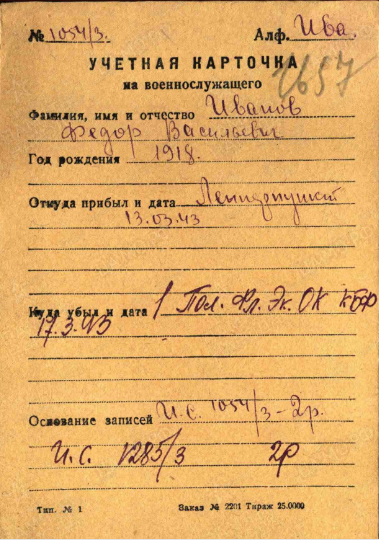 № 1054/3. Алф. Ива.
УЧЕТНАЯ КАРТОЧКА
на военнослужащего
1657
Фамилия, имя и отчество Иванов
Федор Васильевич
Год рождения 1918.
Откуда прибыл и дата
13.03.43
Куда убыл и дата 1 Пол. Фл. Эк. ОК КБФ
17.3.43
Основание записей И.С. 1054/3 - 2р.
И.С. 1285/3 2р
Тип. № 1 Заказ № 2201 Тираж 25.0000